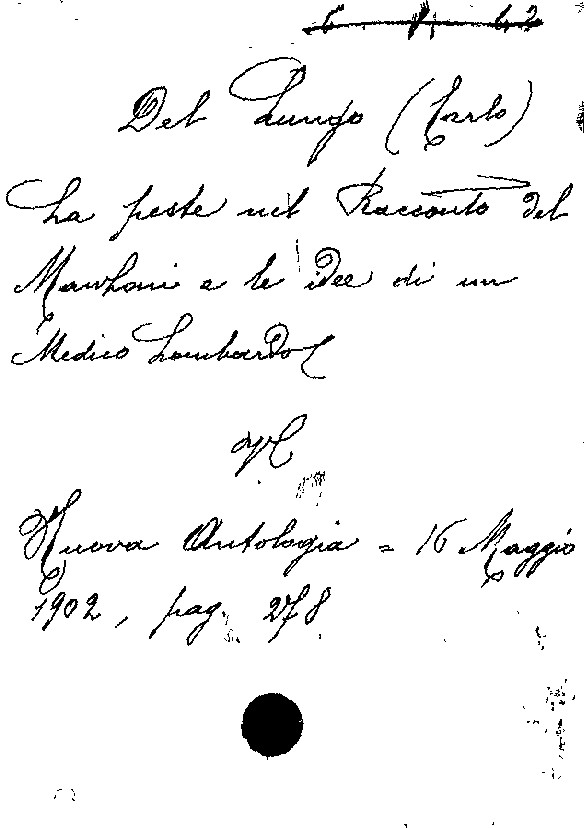 Del Lungo (Carlo)
La peste nel Racconto del
Manzoni e le idee di un
Medico Lombardo
Nuova Antologia = 16 Maggio
1902, pag. 278